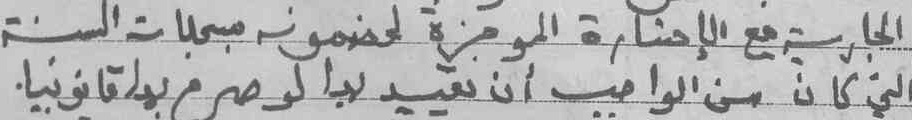 الجارية مع الإشارة الموجزة لمضمونه سجلات السنة
التي كان من الواجب أن تقيد بها لو صرح بها قانونيا.